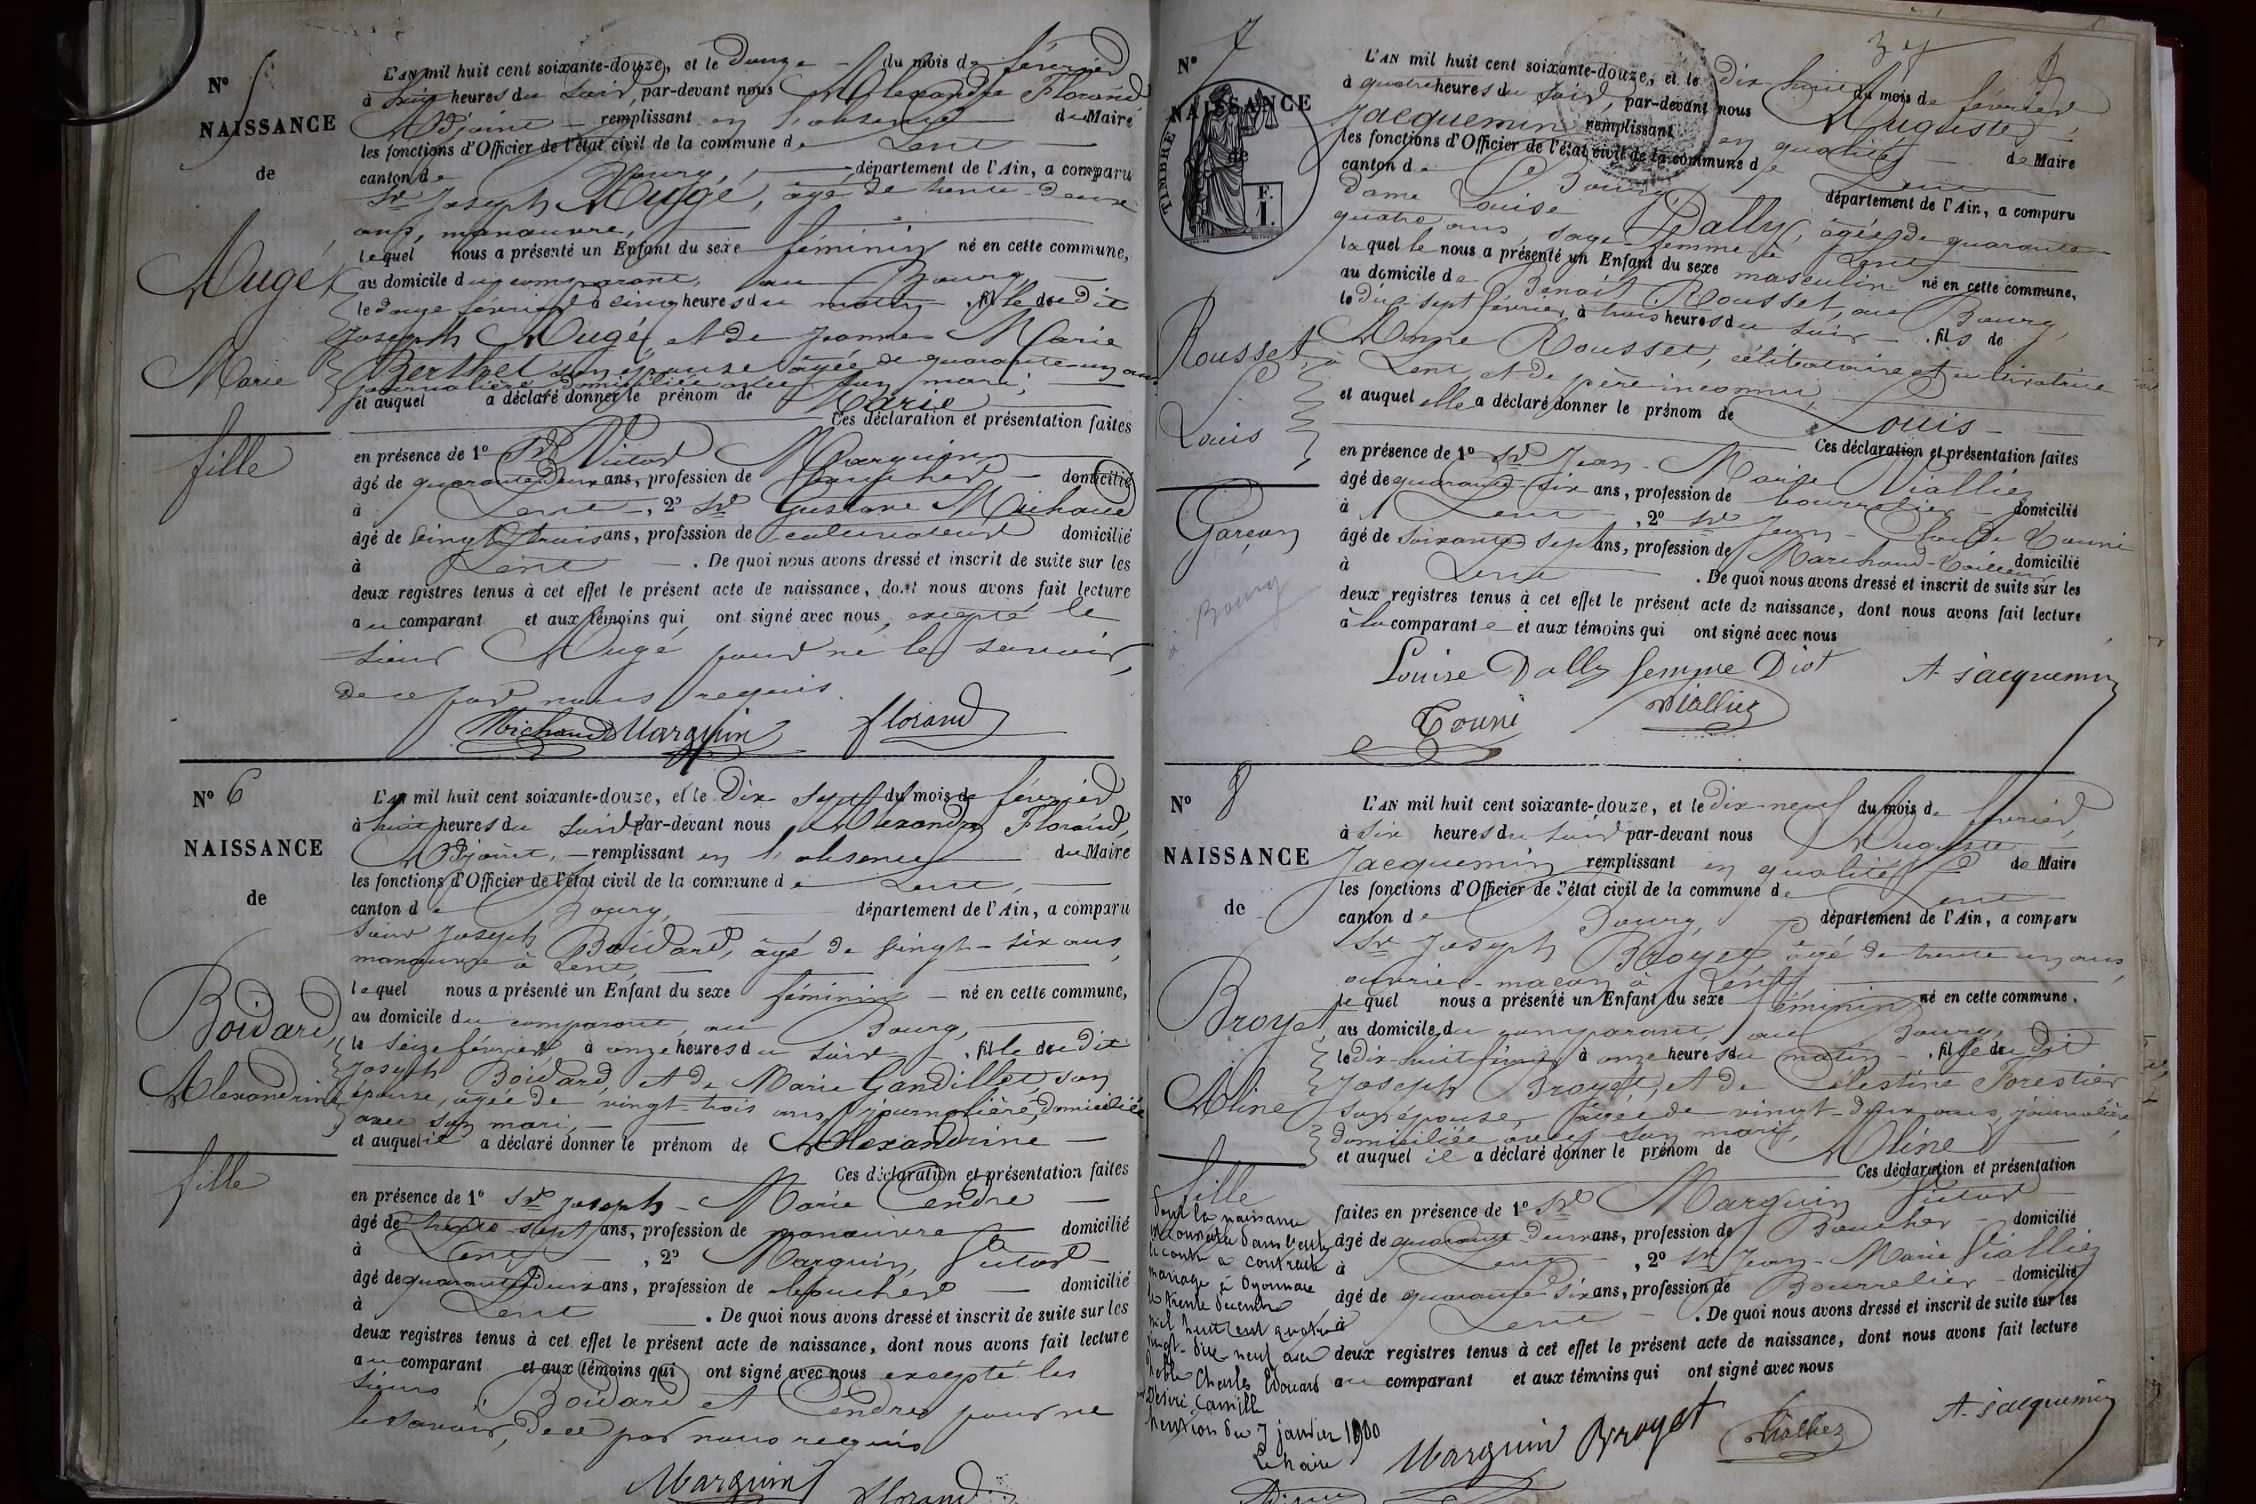 N° 5
NAISSANCE
de
Mugé
Marie
fille
L'AN mil huit cent soixante-douze, et le Douze du mois de février
à six heures du soir, par-devant nous Alexandre Florand
Adjoint remplissant en l'absence du Maire
les fonctions d'Officier de l'état civil de la commune de Lent
canton de Bourg, département de l'Ain, a comparu
Sr Joseph Mugé, âgé de trente deux
ans, manœuvre,
lequel nous a présenté un Enfant du sexe féminin né en cette commune,
au domicile du comparant, au Bourg,
le douze février à cinq heures du matin, fille du dit
Joseph Mugé et de Jeanne Marie
Berthet son épouse âgée de quarante-un ans
journalière domiciliée avec son mari,
et auquel a déclaré donner le prénom de Marie
Ces déclaration et présentation faites
en présence de 1° Sr Victor Marquin
âgé de quarante deux ans, profession de boucher domicilié
à Lent, 2° Sr Gustave Michaud
âgé de vingt trois ans, profession de cultivateur domicilié
à Lent. De quoi nous avons dressé et inscrit de suite sur les
deux registres tenus à cet effet le présent acte de naissance, dont nous avons fait lecture
au comparant et aux témoins qui ont signé avec nous, excepté le
sieur Mugé pour ne le savoir,
de ce par nous requis.
Michaud Marquin Florand
N° 6
NAISSANCE
de
Boidard,
Alexandrine
fille
L'AN mil huit cent soixante-douze, et le Dix sept du mois de février
à huit heures du soir par-devant nous Alexandre Florand,
Adjoint, remplissant en l'absence du Maire
les fonctions d'Officier de l'état civil de la commune de Lent,
canton de Bourg, département de l'Ain, a comparu
Sieur Joseph Boidard, âgé de vingt-six ans,
manœuvre à Lent,
lequel nous a présenté un Enfant du sexe féminin né en cette commune,
au domicile du comparant, au Bourg,
le seize février à onze heures du soir, fille du dit
Joseph Boidard, et de Marie Gandillet, son
épouse, âgée de vingt-trois ans, journalière, domiciliée
avec son mari,
et auquel il a déclaré donner le prénom de Alexandrine
Ces déclaration et présentation faites
en présence de 1° Sr Joseph-Marie Cendre
âgé de trente-sept ans, profession de manœuvre domicilié
à Lent, 2° Marquin, Victor
âgé de quarante deux ans, profession de boucher domicilié
à Lent. De quoi nous avons dressé et inscrit de suite sur les
deux registres tenus à cet effet le présent acte de naissance, dont nous avons fait lecture
au comparant et aux témoins qui ont signé avec nous excepté les
sieurs Boidard et Cendre pour ne
le savoir, de ce par nous requis
Marquin Florand
39
N° 7
NAISSANCE
de
TIMBRE
F.
1.
Rousset
Louis
Garçon
à Bourg
L'AN mil huit cent soixante-douze, et le dix huit du mois de février
à quatre heures du soir, par-devant nous Auguste
Jacquemin remplissant en qualité de Maire
les fonctions d'Officier de l'état civil de la commune de Lent
canton de Bourg département de l'Ain, a comparu
Dame Louise Dally, âgée de quarante
quatre ans, sage-femme à Lent
laquelle nous a présenté un Enfant du sexe masculin né en cette commune,
au domicile de Benoît Rousset, au Bourg,
le dix-sept février, à trois heures du soir, fils de
Anne Rousset, célibataire et cultivatrice
à Lent, et de père inconnu,
et auquel elle a déclaré donner le prénom de Louis
Ces déclaration et présentation faites
en présence de 1° Sr Jean-Marie Vialliez
âgé de quarante-six ans, profession de bourrelier domicilié
à Lent, 2° Sr Jean-Claude Touni
âgé de soixante sept ans, profession de Marchand-Tailleur domicilié
à Lent. De quoi nous avons dressé et inscrit de suite sur les
deux registres tenus à cet effet le présent acte de naissance, dont nous avons fait lecture
à la comparante et aux témoins qui ont signé avec nous
Louise Dally femme Diot A. Jacquemin
Touni Vialliez
N° 8
NAISSANCE
de
Broyet,
Aline
fille
dont la naissance
mariage à Oyonnax
le trente décembre
mil huit cent quatre
vingt-dix-neuf avec
Charles Edouard
Désiré Camille
du 7 janvier 1900
Le Maire
L'AN mil huit cent soixante-douze, et le dix-neuf du mois de février,
à six heures du soir par-devant nous Auguste
Jacquemin remplissant en qualité de Maire
les fonctions d'Officier de l'état civil de la commune de Lent
canton de Bourg, département de l'Ain, a comparu
Sr Joseph Broyet âgé de trente un ans,
ouvrier-maçon à Lent,
lequel nous a présenté un Enfant du sexe féminin né en cette commune,
au domicile du comparant, au Bourg,
le dix-huit février à onze heures du matin, fille du dit
Joseph Broyet, et de Célestine Forestier
son épouse, âgée de vingt-deux ans, journalière,
domiciliée avec son mari,
et auquel il a déclaré donner le prénom de Aline
Ces déclaration et présentation
faites en présence de 1° Sr Marquin Victor
âgé de quarante deux ans, profession de Boucher domicilié
à Lent, 2° Sr Jean-Marie Vialliez
âgé de quarante six ans, profession de Bourrelier domicilié
à Lent. De quoi nous avons dressé et inscrit de suite sur les
deux registres tenus à cet effet le présent acte de naissance, dont nous avons fait lecture
au comparant et aux témoins qui ont signé avec nous
Marquin Broyet Vialliez A. Jacquemin